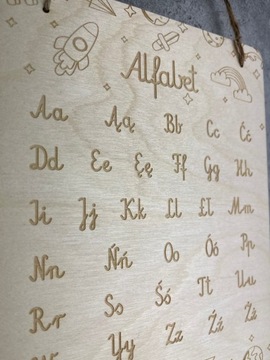 Alfabet
Aa Ąą Bb Cc Ćć
Dd Ee Ęę Ff Gg Hh
Ii Jj Kk Ll Łł Mm
Nn Ńń Oo Óó Pp
Rr Ss Śś Tt Uu
Yy Zz Źź Żż